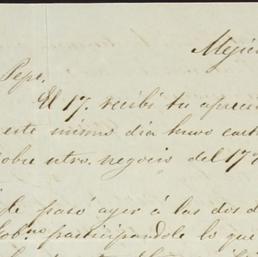 Méjico
Pepe.
El 17. recibí tu aprecia
este mismo dia tuve cart
sobre otro negocio del 17
pasó ayer á las dos d
Gob.no participandole lo que